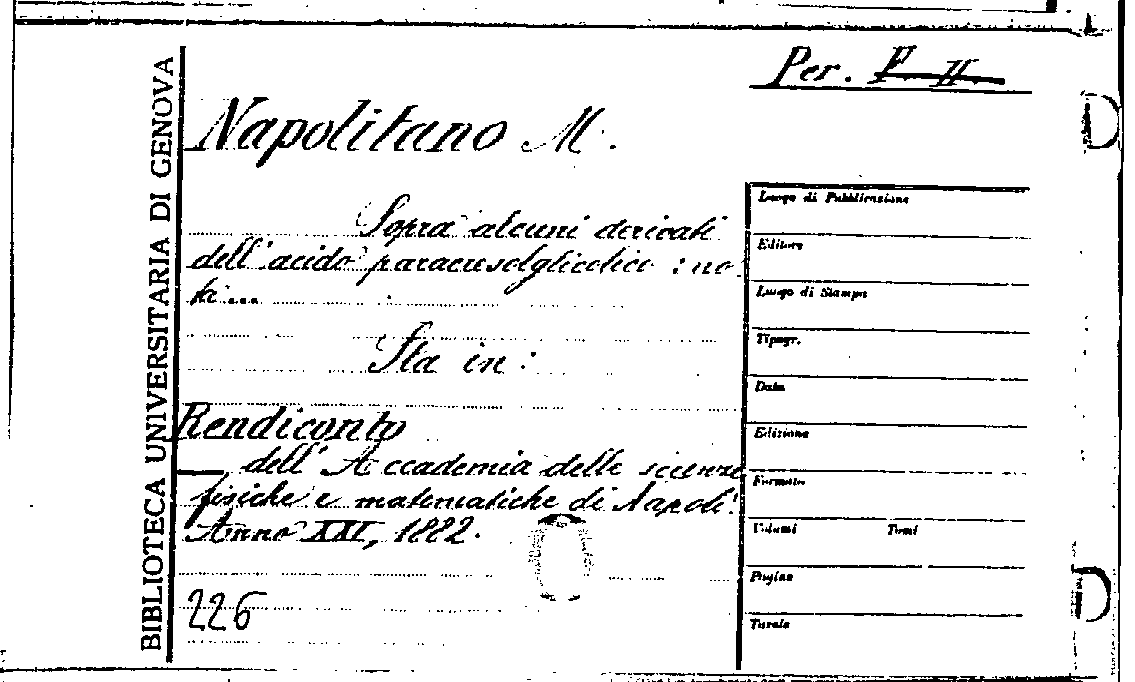 Per. F II
Napolitano M.
Sopra alcuni derivati
dell'acido paracresolglicolico : no
ta...
Sta in :
Rendiconto
dell'Accademia delle scienze
fisiche e matematiche di Napoli.
Anno XXI, 1882.
226
BIBLIOTECA UNIVERSITARIA DI GENOVA
Luogo di Pubblicazione
Editore
Luogo di Stampa
Tipogr.
Data
Edizione
Formato
Volumi Tomi
Pagine
Tavole